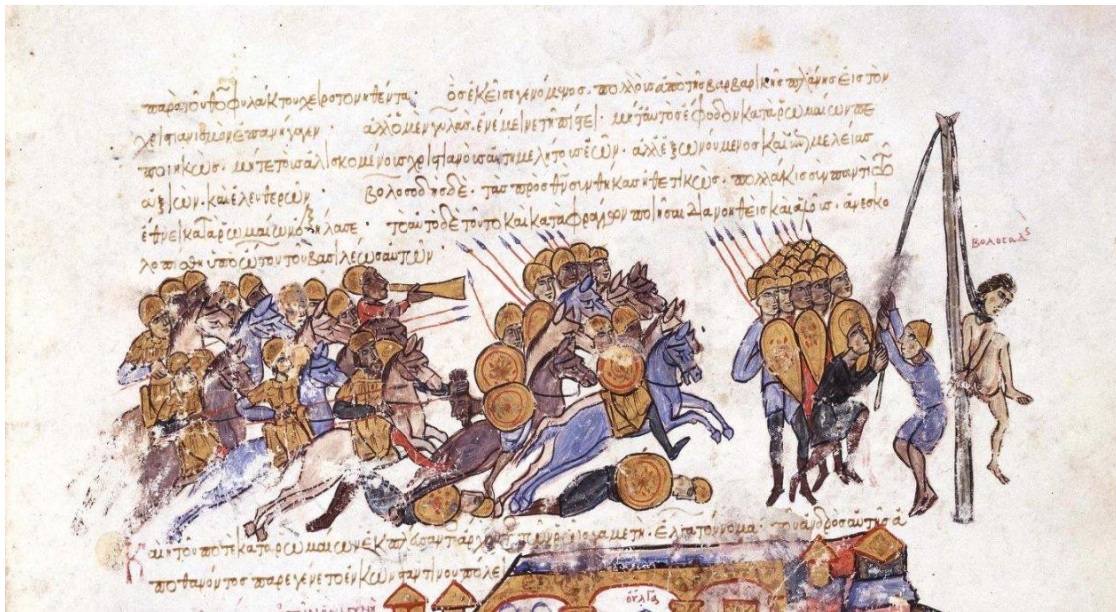 παρὰ τοῦ θεοφυλάκτου χειροτονηθέντα. ὃς ἐκεῖσε γενόμενος. πολλοὺς ἀπὸ τῆς βαρβαρικῆς πλάνης εἰς τὸν
χριστιανισμὸν ἐπανήγαγεν. ἀλλ' ὁ μὲν γυλᾶς. ἐνέμεινε τῇ πίστει. μήτ' αὐτὸς ἔφοδον κατὰ ῥωμαίων πε
ποιηκώς. μήτε τοὺς ἁλισκομένους χριστιανοὺς ἀτημελήτους ἐῶν. ἀλλ' ἐξωνούμενος καὶ ἐπιμελείας
ἀξιῶν. καὶ ἐλευθερῶν. βολοσουδης δὲ. τὰς πρὸς θν συνθήκας ἠθετικώς. πολλάκις σὺν παντὶ τῶ
ἔθνει κατὰ ῥωμαίων ἐξήλασε. τὸ αὐτὸ δὲ τοῦτο καὶ κατὰ φράγγων ποιῆσαι διανοηθεὶς καὶ ἁλοὺς. ἀνεσκο
λοπίσθη ὑπὸ ὤτου τοῦ βασιλέως αὐτῶν
βολοσουδης
Καὶ ἡ τοῦ ποτὲ κατὰ ῥωμαίων ἐκπλεύσαντος ἄρχοντος τῶν ῥῶς γαμετὴ. ἔλγα τοὔνομα. τοῦ ἀνδρὸς αὐτῆς ἀ
ποθανόντος παρεγένετο ἐν κωνσταντινουπόλει